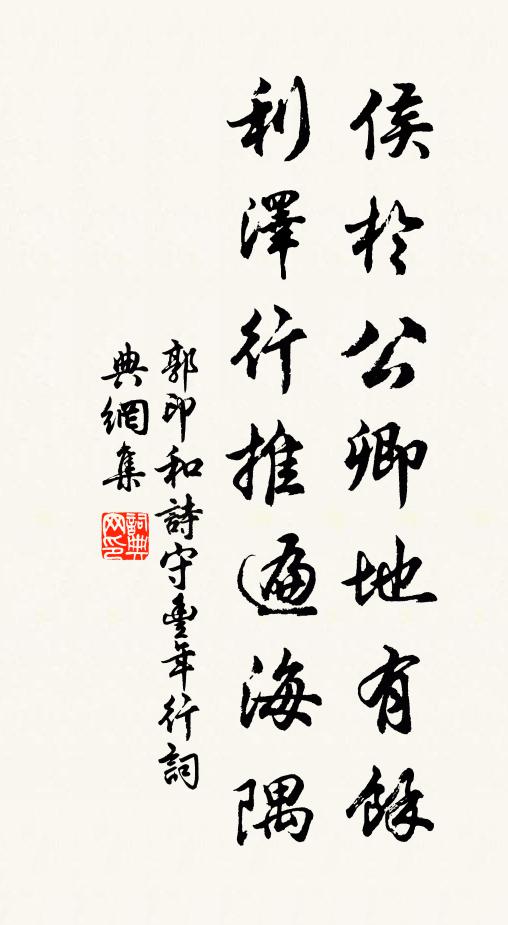 侯於公卿地有餘
利澤行推遍海隅
郭印和詩守豐年行詞
典網集
詞典網印